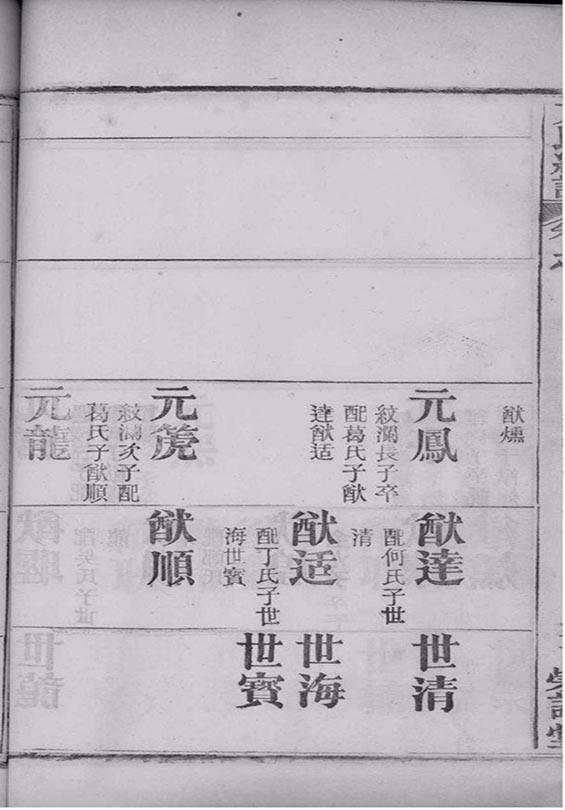 猷燻
元鳳
紋瀾長子卒
配葛氏子猷
達猷适
元箎
紋瀾次子配
葛氏子猷順
元龍
猷達
配何氏子世
清
猷适
配丁氏子世
海世賓
猷順
世清
世海
世賓
世龍